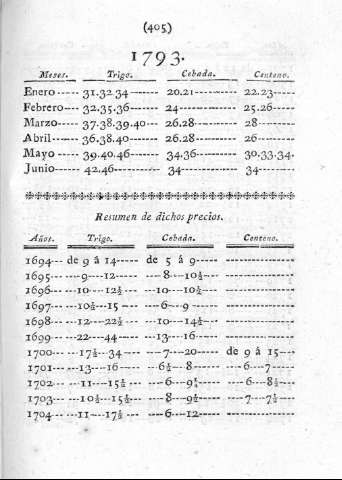 (405)
1793.
Meses. Trigo. Cebada. Centeno.
Enero----- 31.32.34 ------- 20.21-------- 22.23------
Febrero---- 32.35.36------- 24----------- 25.26------
Marzo----- 37.38.39.40--- 26.28-------- 28---------
Abril----- 36.38.40------- 26.28-------- 26---------
Mayo ----- 39.40.46------- 34.36-------- 30.33.34.
Junio------ 42.46---------- 34----------- 34---------
Resumen de dichos precios.
Años. Trigo. Cebada. Centeno.
1694-- de 9 â 14----- de 5 â 9----- --------------
1695-- ----9---12----- ---8---10½--- --------------
1696-- ---10---12½--- --10---10½--- --------------
1697-- ---10½--15 ---- ---6---9----- --------------
1698-- ---12---22½--- --10---14½--- --------------
1699-- ---22---44----- --13---16---- --------------
1700-- ---17½--34---- ---7---20---- de 9 â 15---
1701-- ---13---16----- --6½--8----- ----6---7-----
1702-- ---11---15½--- ---6---9¼---- ---6---8½---
1703-- ---10½--15½--- ---8---9½---- ---7---7½---
1704-- ---11---17½--- ---6---12---- --------------